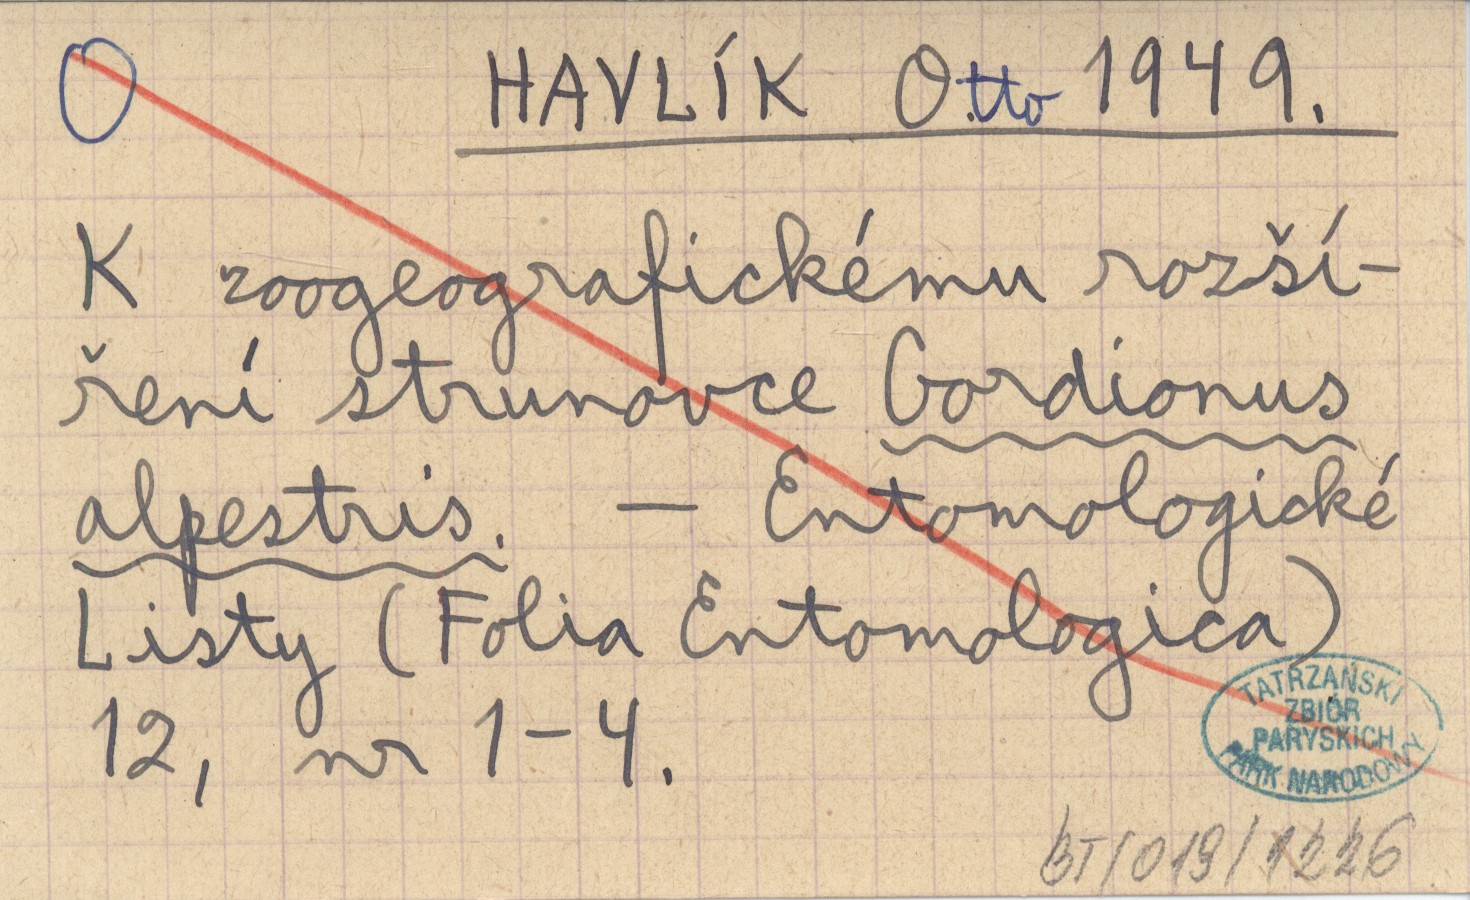 O HAVLÍK Otto 1949.
K zoogeografickému rozší-
ření strunovce Gordionus
alpestris. — Entomologické
Listy (Folia Entomologica)
12, nr 1-4.
TATRZAŃSKI
ZBIÓR
PARYSKICH
PARK NARODOWY
BT/019/1226